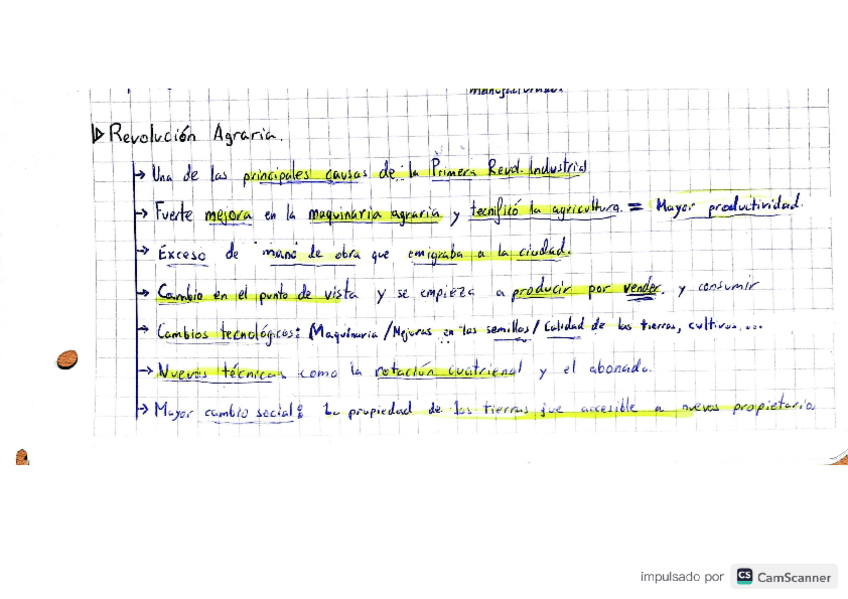 ▷ Revolución Agraria.
→ Una de las principales causas de la Primera Revol. Industrial
→ Fuerte mejora en la maquinaria agraria y tecnificó la agricultura. = Mayor productividad.
→ Exceso de mano de obra que emigraba a la ciudad.
→ Cambio en el punto de vista y se empieza a producir por vender. y consumir
→ Cambios tecnológicos: Maquinaria / Mejoras en las semillas / Calidad de las tierras, cultivos...
→ Nuevas técnicas como la rotación cuatrienal y el abonado.
→ Mayor cambio social: La propiedad de las tierras fue accesible a nuevos propietarios
impulsado por CS CamScanner